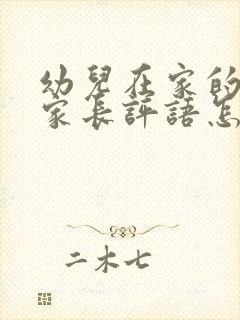 幼兒在家的
家長評語怎
二木七